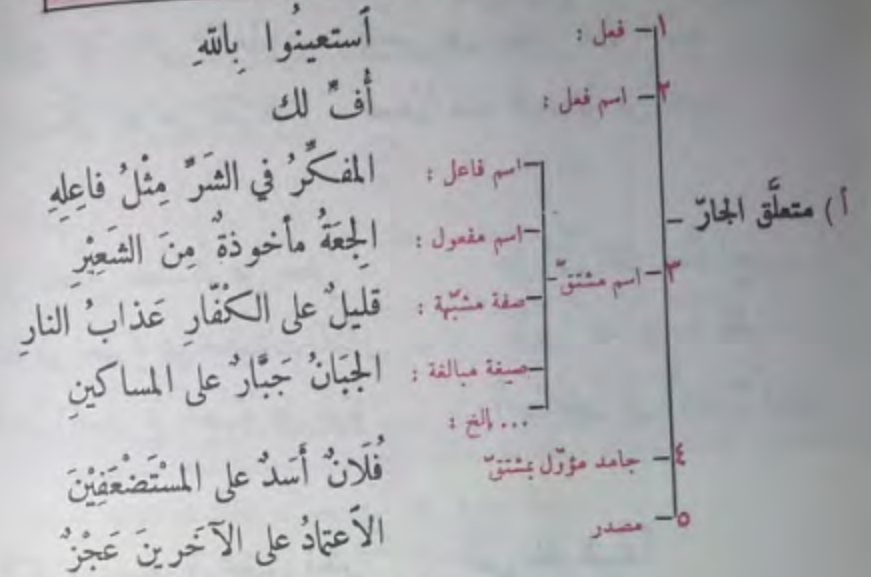 ١- فعل : أستعينُوا بِاللهِ
٢- اسم فعل : أُفٍّ لك
أ) متعلَّق الجارّ
٣- اسم مشتقّ
اسم فاعل : المفكِّرُ في الشَرِّ مِثْلُ فاعِلِهِ
اسم مفعول : الجِعَةُ مأخوذةٌ مِنَ الشَعِيْرِ
صفة مشبّهة : قليلٌ على الكُفّارِ عَذابُ النارِ
صيغة مبالغة : الجَبَانُ جَبَّارٌ على المساكينِ
... إلخ :
٤- جامد مؤوّل بمشتقّ فُلَانٌ أَسَدٌ على المسْتَضْعَفِيْنَ
٥- مصدر الاَعتمادُ على الآخَرينَ عَجْزٌ